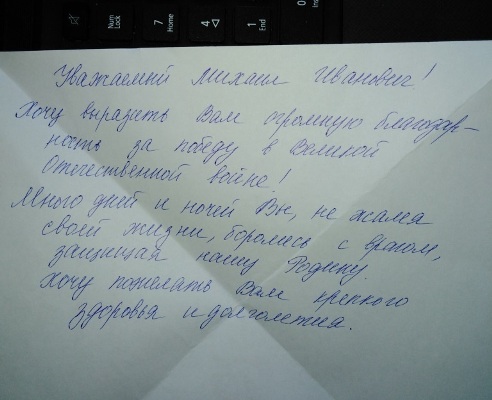 Num Lock
7 Home
4
1 End
0 Ins
Уважаемый Михаил Иванович!
Хочу выразить Вам огромную благодар-
ность за победу в Великой
Отечественной войне!
Много дней и ночей Вы, не жалея
своей жизни, боролись с врагом,
защищая нашу Родину.
Хочу пожелать Вам крепкого
здоровья и долголетия.